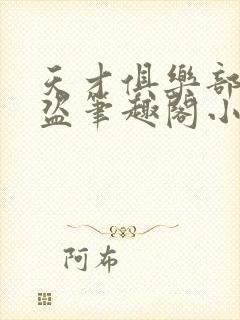 天才俱樂部
盜筆趣閣小
阿布